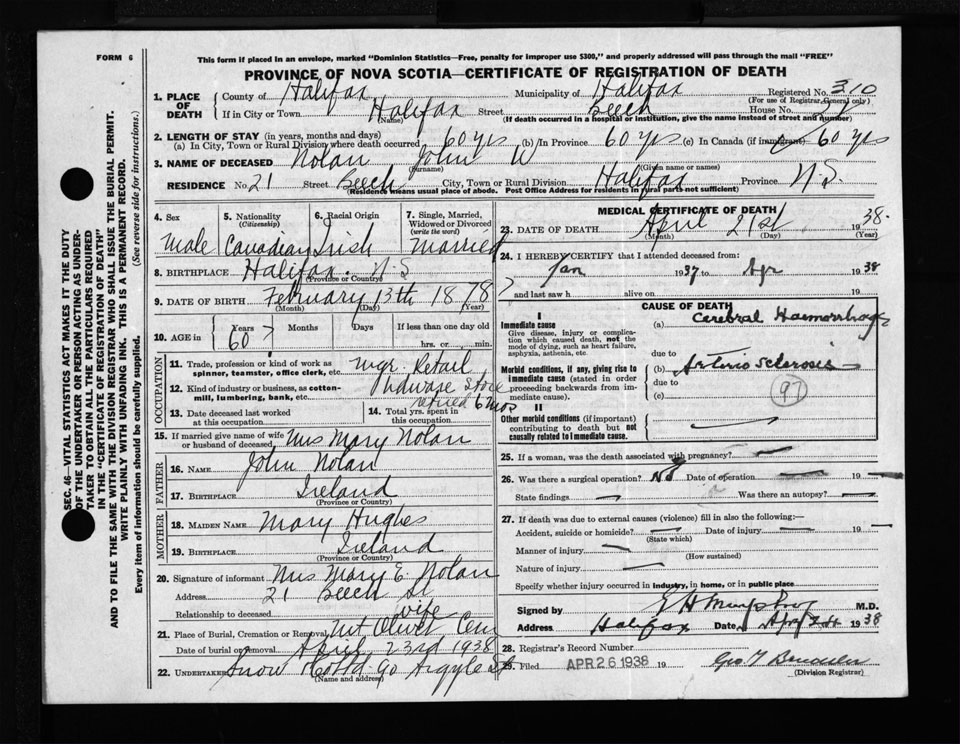 FORM 6
This form if placed in an envelope, marked "Dominion Statistics—Free, penalty for improper use $300," and properly addressed will pass through the mail "FREE"
PROVINCE OF NOVA SCOTIA—CERTIFICATE OF REGISTRATION OF DEATH
SEC. 46—VITAL STATISTICS ACT MAKES IT THE DUTY
OF THE UNDERTAKER OR PERSON ACTING AS UNDER-
TAKER TO OBTAIN ALL THE PARTICULARS REQUIRED
IN THE "CERTIFICATE OF REGISTRATION OF DEATH"
AND TO FILE THE SAME WITH THE DIVISION REGISTRAR WHO SHALL ISSUE THE BURIAL PERMIT.
WRITE PLAINLY WITH UNFADING INK. THIS IS A PERMANENT RECORD.
Every item of information should be carefully supplied. (See reverse side for instructions.)
1. PLACE OF DEATH County of Halifax Municipality of Halifax Registered No. 310
(For use of Registrar General only)
If in City or Town Halifax Street Beech House No. 21
(Name) (If death occurred in a hospital or institution, give the name instead of street and number)
2. LENGTH OF STAY (in years, months and days)
(a) In City, Town or Rural Division where death occurred 60 yrs (b) In Province 60 yrs (c) In Canada (if immigrant) 60 yrs
3. NAME OF DECEASED Nolan John W
(Surname) (Given name or names)
RESIDENCE No. 21 Street Beech City, Town or Rural Division Halifax Province N.S.
(Residence means usual place of abode. Post Office Address for residents in rural parts not sufficient)
4. Sex Male
5. Nationality (Citizenship) Canadian
6. Racial Origin Irish
7. Single, Married, Widowed or Divorced (write the word) Married
8. BIRTHPLACE Halifax. N.S
(Province or Country)
9. DATE OF BIRTH February 13th 1878
(Month) (Day) (Year)
10. AGE in Years 60 Months Days If less than one day old
hrs. or min.
OCCUPATION
11. Trade, profession or kind of work as spinner, teamster, office clerk, etc. mgr. Retail
12. Kind of industry or business, as cotton-mill, lumbering, bank, etc. hdware Store
retired 6 mos
13. Date deceased last worked at this occupation
14. Total yrs. spent in this occupation
15. If married give name of wife or husband of deceased Mrs Mary Nolan
FATHER
16. NAME John Nolan
17. BIRTHPLACE Ireland
(Province or Country)
MOTHER
18. MAIDEN NAME Mary Hughes
19. BIRTHPLACE Ireland
(Province or Country)
20. Signature of informant Mrs Mary E. Nolan
Address 21 Beech St
Relationship to deceased wife
21. Place of Burial, Cremation or Removal Mt Olivet Cem
Date of burial or removal April 23rd 1938
22. UNDERTAKER Snow & Co Ltd. Argyle St
(Name and address)
MEDICAL CERTIFICATE OF DEATH
23. DATE OF DEATH April 21st 1938.
(Month) (Day) (Year)
24. I HEREBY CERTIFY that I attended deceased from:
Jan 1937 to Apr 1938
and last saw h alive on 19
CAUSE OF DEATH
I
Immediate cause
Give disease, injury or complication which caused death, not the mode of dying, such as heart failure, asphyxia, asthenia, etc.
(a) Cerebral Haemorrhage
due to
Morbid conditions, if any, giving rise to immediate cause (stated in order proceeding backwards from immediate cause).
(b) Arteriosclerosis
due to
(c)
97
II
Other morbid conditions (if important) contributing to death but not causally related to immediate cause.
25. If a woman, was the death associated with pregnancy?
26. Was there a surgical operation? No Date of operation 19
State findings Was there an autopsy?
27. If death was due to external causes (violence) fill in also the following:—
Accident, suicide or homicide? Date of injury 19
(State which)
Manner of injury
(How sustained)
Nature of injury
Specify whether injury occurred in industry, in home, or in public place
Signed by E H Murphy M.D.
Address Halifax Date Apr 24 1938
28. Registrar's Record Number
29. Filed APR 26 1938 19
(Division Registrar)